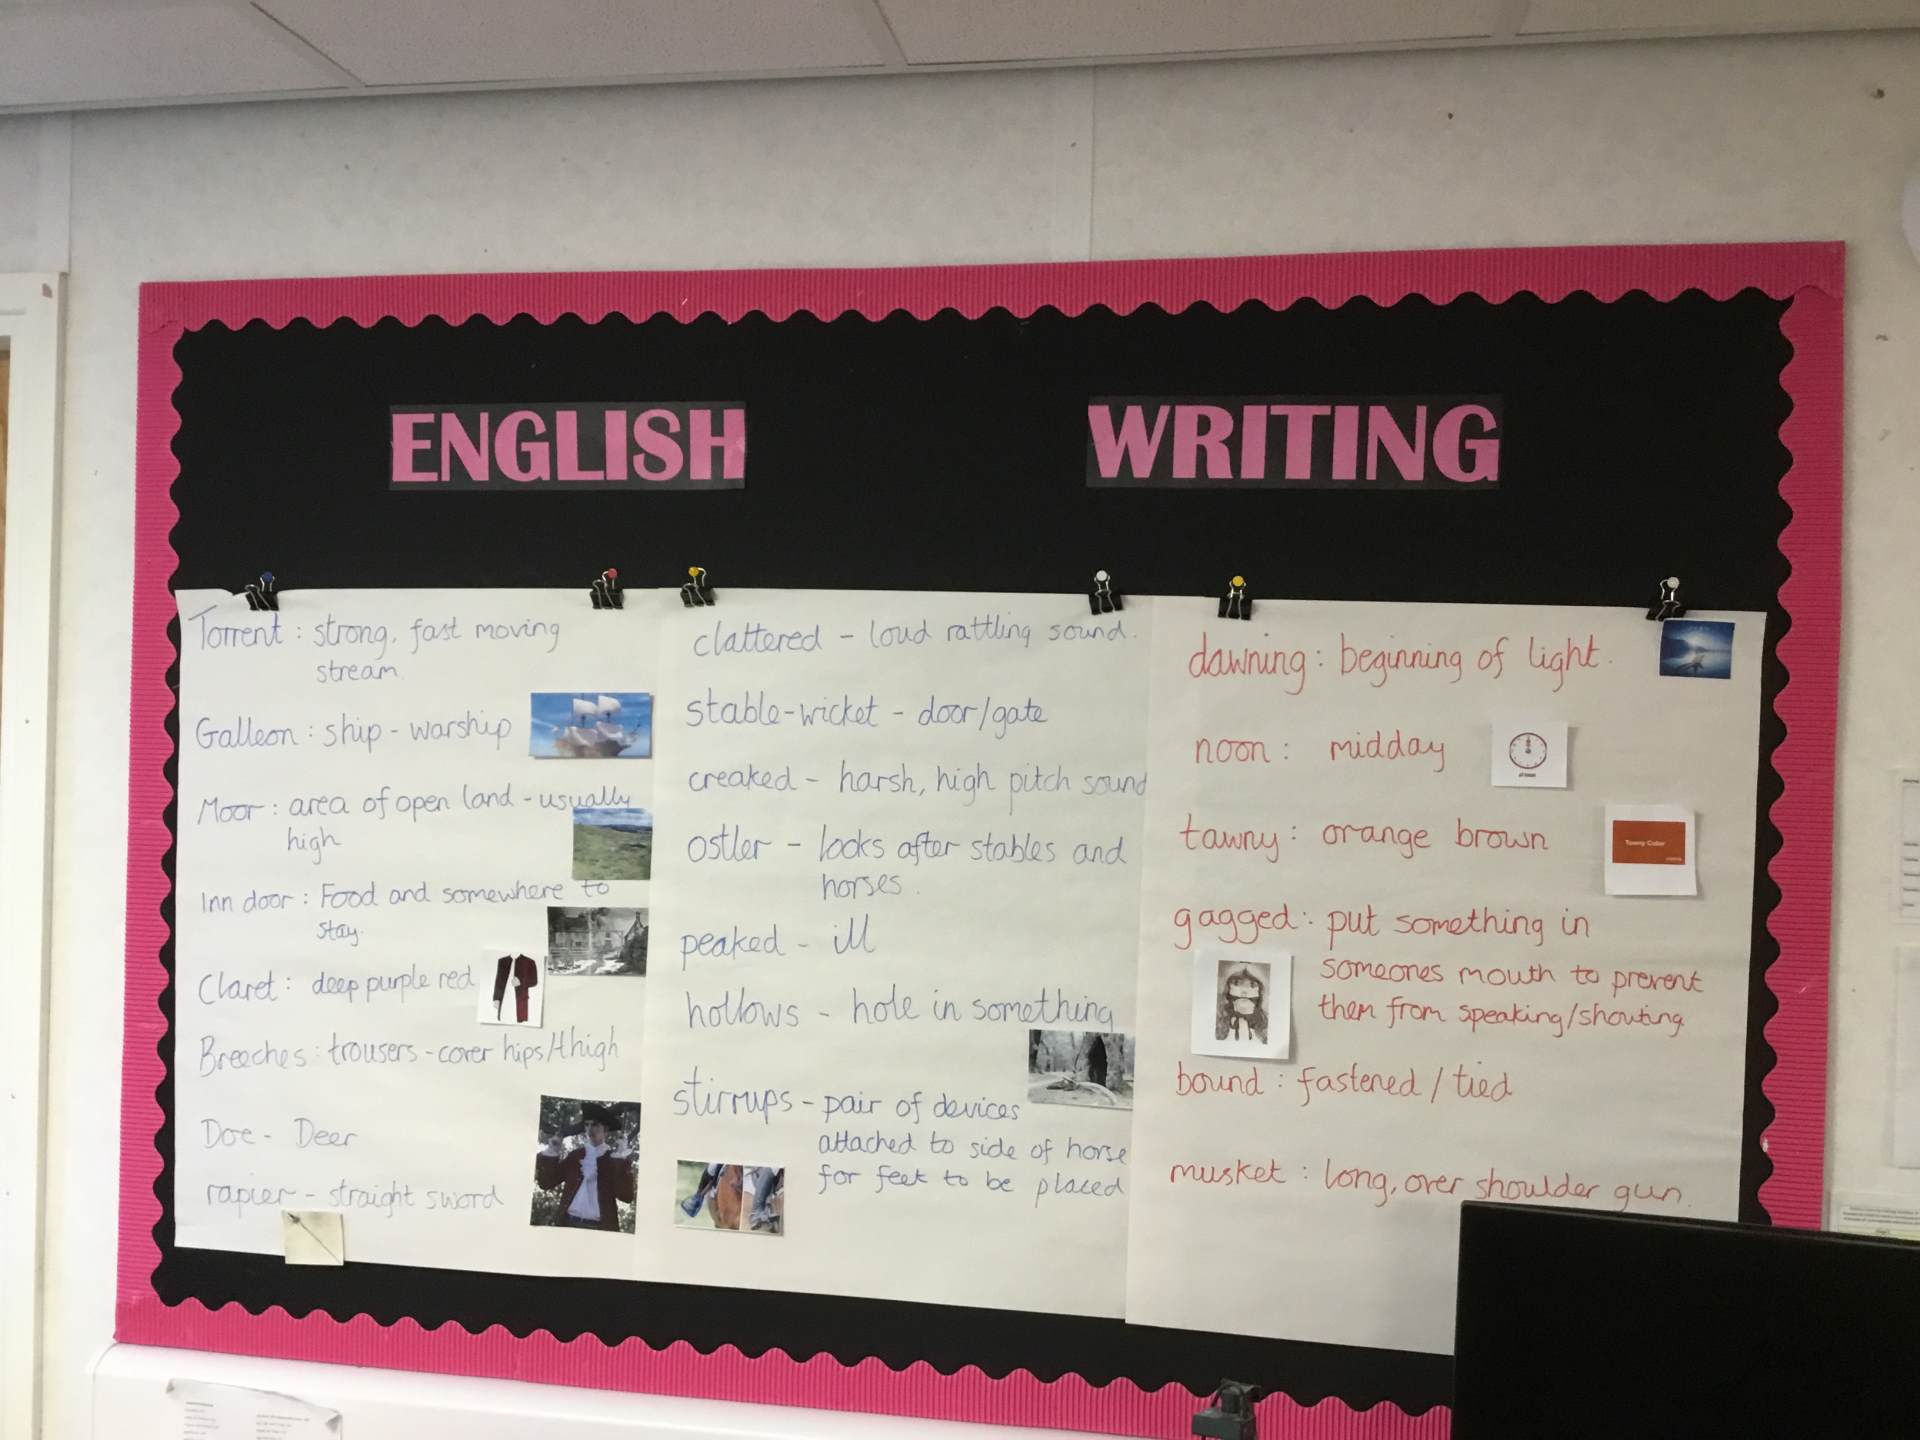 ENGLISH WRITING
Torrent : strong, fast moving
stream.
Galleon : ship - warship
Moor : area of open land - usually
high
Inn door : Food and somewhere to
stay.
Claret : deep purple red
Breeches : trousers - cover hips/thigh
Doe - Deer
rapier - straight sword
clattered - loud rattling sound.
stable-wicket - door/gate
creaked - harsh, high pitch sound
ostler - looks after stables and
horses.
peaked - ill
hollows - hole in something
stirrups - pair of devices
attached to side of horse
for feet to be placed
dawning : beginning of light.
noon : midday
tawny : orange brown
Tawny Color
gagged : put something in
someones mouth to prevent
them from speaking/shouting
bound : fastened / tied
musket : long, over shoulder gun.